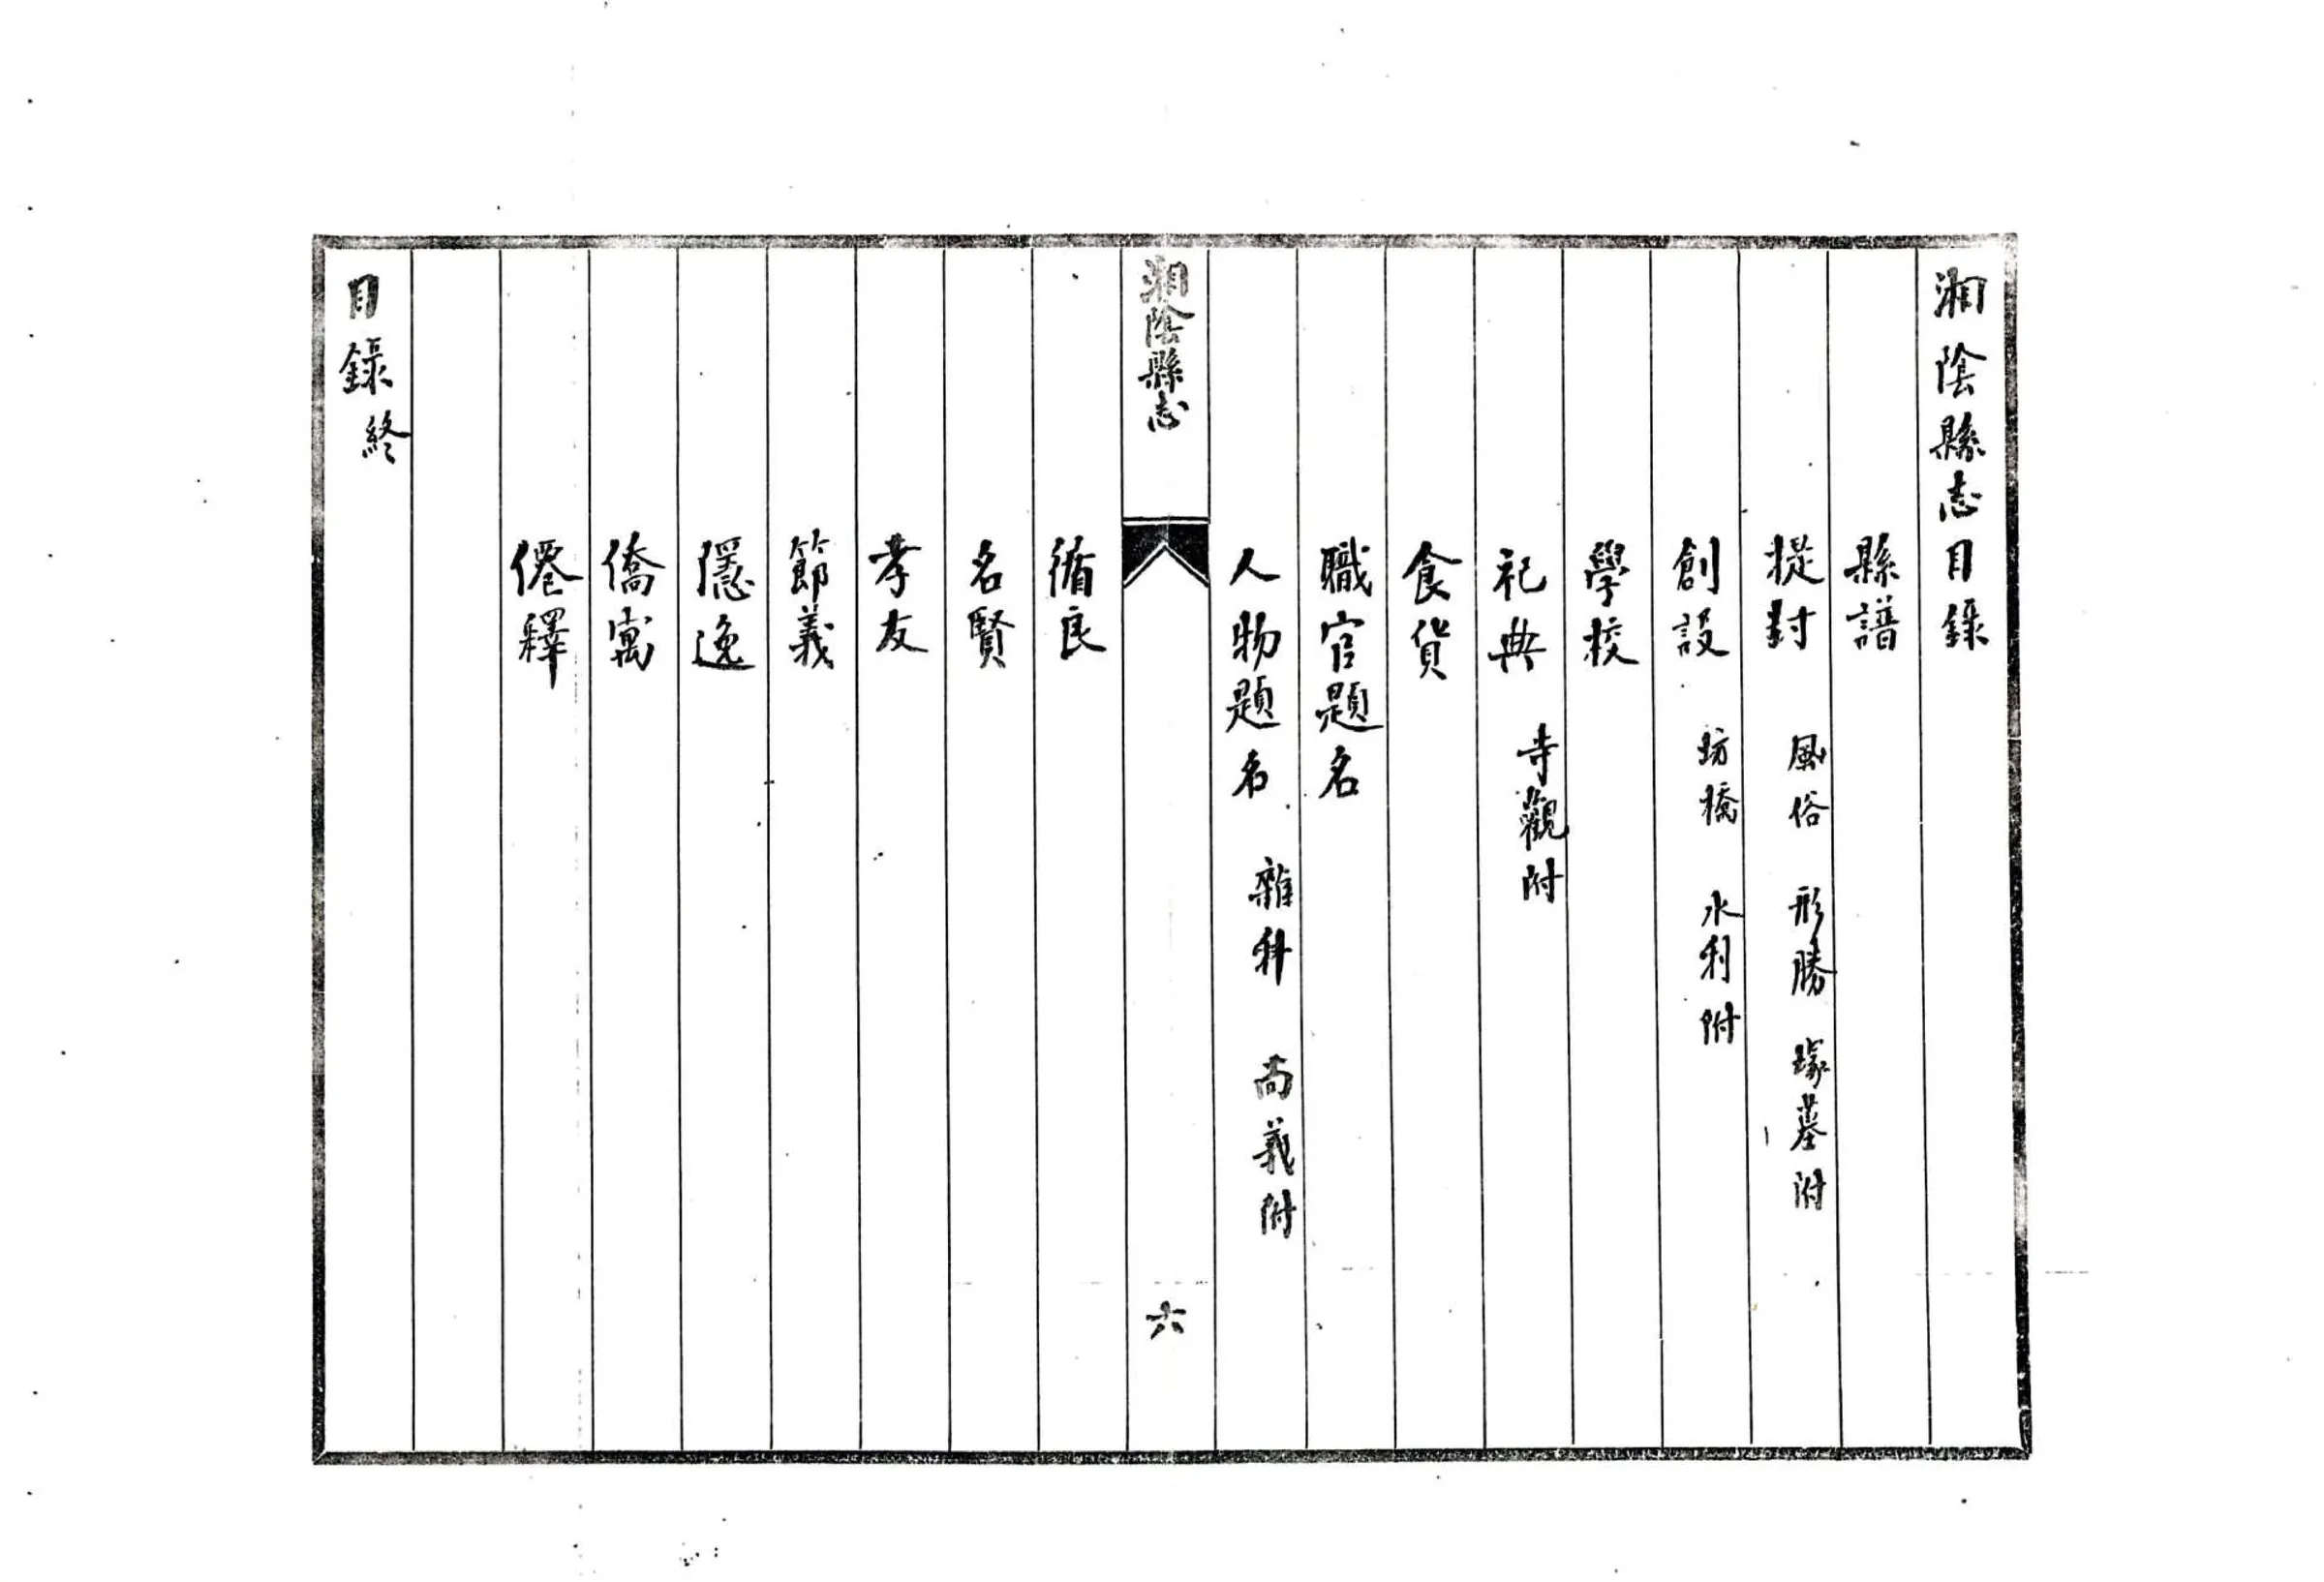 湘陰縣志目錄
縣譜
提封 風俗 形勝 塚墓附
創設 坊橋 水利附
學校
祀典 寺觀附
食貨
職官題名
人物題名 雜科 尚義附
湘陰縣志 六
循良
名賢
孝友
節義
隱逸
僑寓
僊釋
目錄終